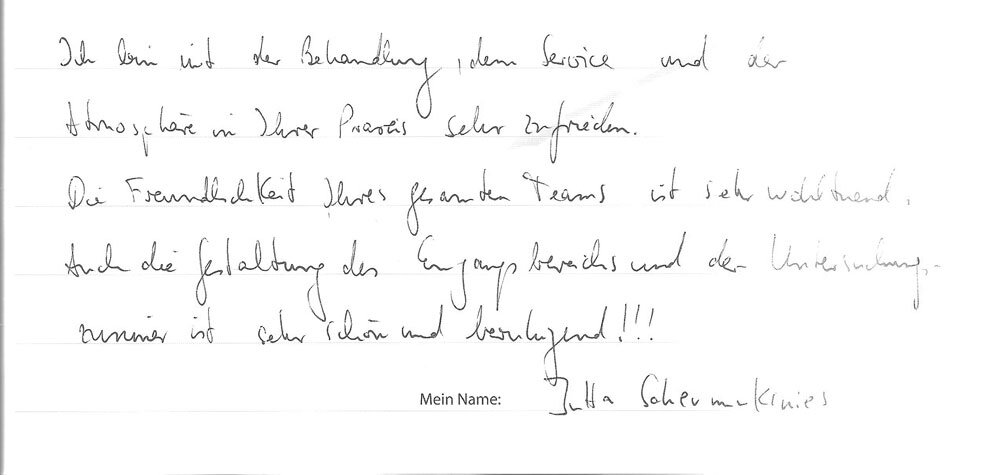 Ich bin mit der Behandlung, dem Service und der
Atmosphäre in Ihrer Praxis sehr zufrieden.
Die Freundlichkeit Ihres gesamten Teams ist sehr wohltuend.
Auch die Gestaltung des Eingangsbereichs und der Untersuchungs-
zimmer ist sehr schön und beruhigend!!!
Mein Name: Jutta